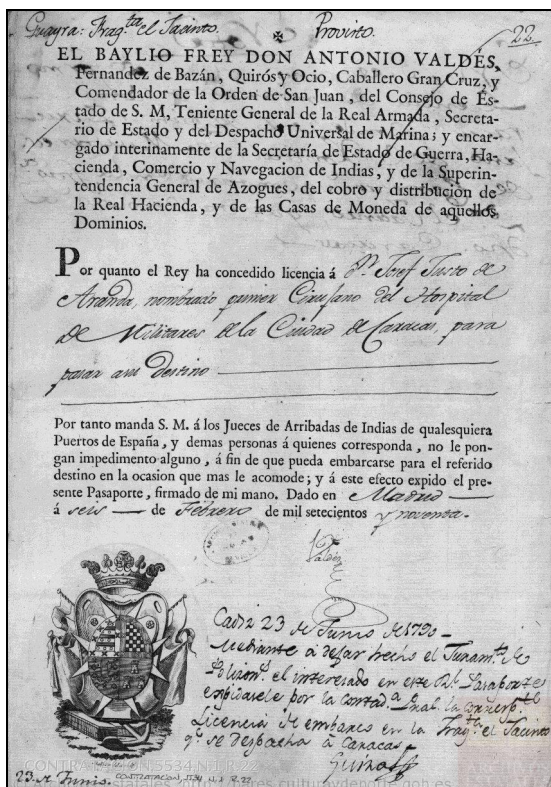 Guayra: Frag.ta el Jacinto. Provisto. 22
EL BAYLIO FREY DON ANTONIO VALDÉS,
Fernandez de Bazán, Quirós y Ocio, Caballero Gran Cruz, y
Comendador de la Orden de San Juan, del Consejo de Es-
tado de S. M, Teniente General de la Real Armada, Secreta-
rio de Estado y del Despacho Universal de Marina; y encar-
gado interinamente de la Secretaría de Estado de Guerra, Ha-
cienda, Comercio y Navegacion de Indias, y de la Superin-
tendencia General de Azogues, del cobro y distribucion de
la Real Hacienda, y de las Casas de Moneda de aquellos
Dominios.
Por quanto el Rey ha concedido licencia á D.n Josef Justo de
Aranda, nombrado primer Cirujano del Hospital
de Militares de la Ciudad de Caracas, para
pasar a su Destino
Por tanto manda S. M. á los Jueces de Arribadas de Indias de qualesquiera
Puertos de España, y demas personas á quienes corresponda, no le pon-
gan impedimento alguno, á fin de que pueda embarcarse para el referido
destino en la ocasion que mas le acomode; y á este efecto expido el pre-
sente Pasaporte, firmado de mi mano. Dado en Madrid
á seis de Febrero de mil setecientos y noventa.
Valdés
Cadiz 23 de Junio de 1790
Mediante a dejar hecho el Juram.to de
el interesado en este R.l Pasaporte
expidasele por la Contad.a Pral. la correspte.
Licencia de embarco en la Frag.ta el Jacinto
q.e se despacha à Caracas
23 de Junio.
CONTRATACION, 5534, N.1, R.22